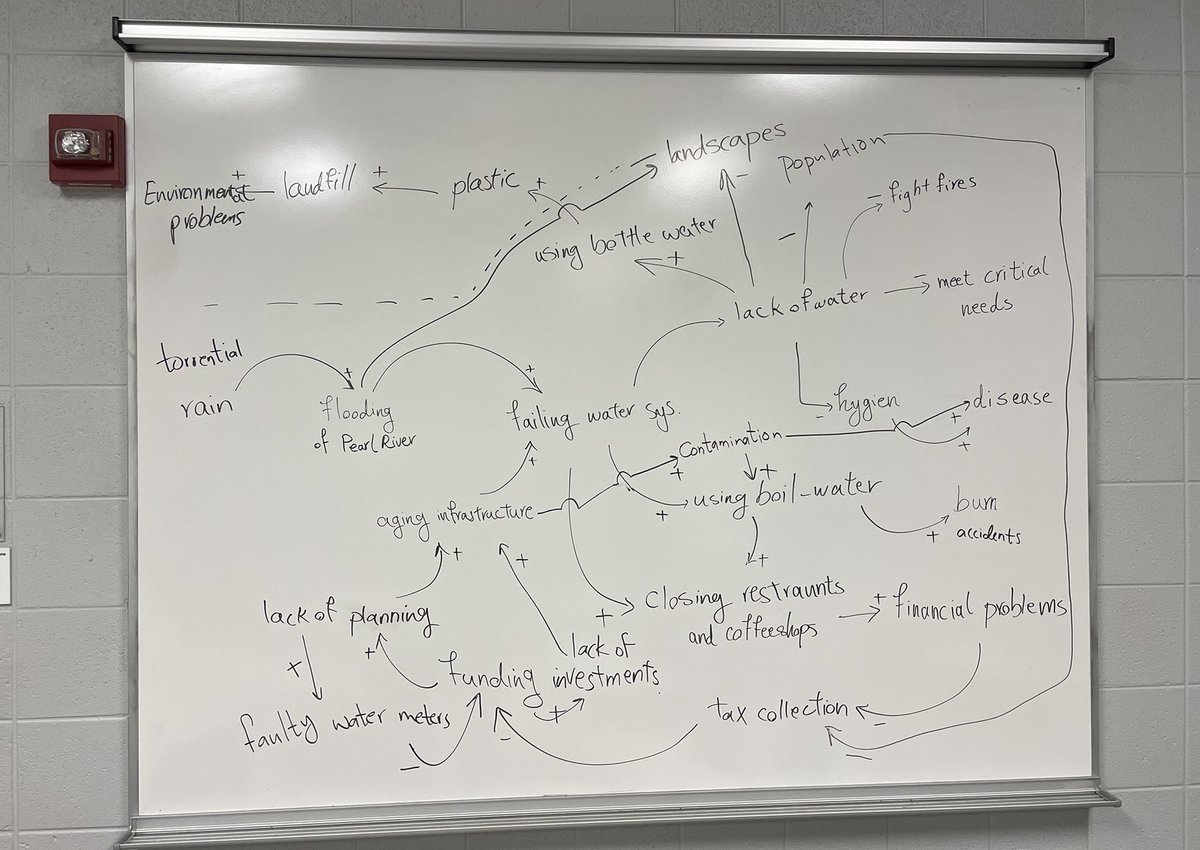 landscapes
population
Environmental
problems
+
landfill
+
plastic
+
-
- fight fires
using bottle water
+
-
lack of water
- meet critical
needs
torrential
rain
+
flooding
of Pearl River
+
failing water sys.
hygien
-
disease
+
+
Contamination
+
+
+
using boil-water
+
aging infrastructure
burn
accidents
+
+
+
+
lack of planning
closing restraunts
and coffeeshops
+
+
financial problems
lack of
investments
+
+
funding
+
faulty water meters
-
-
tax collection
-
-